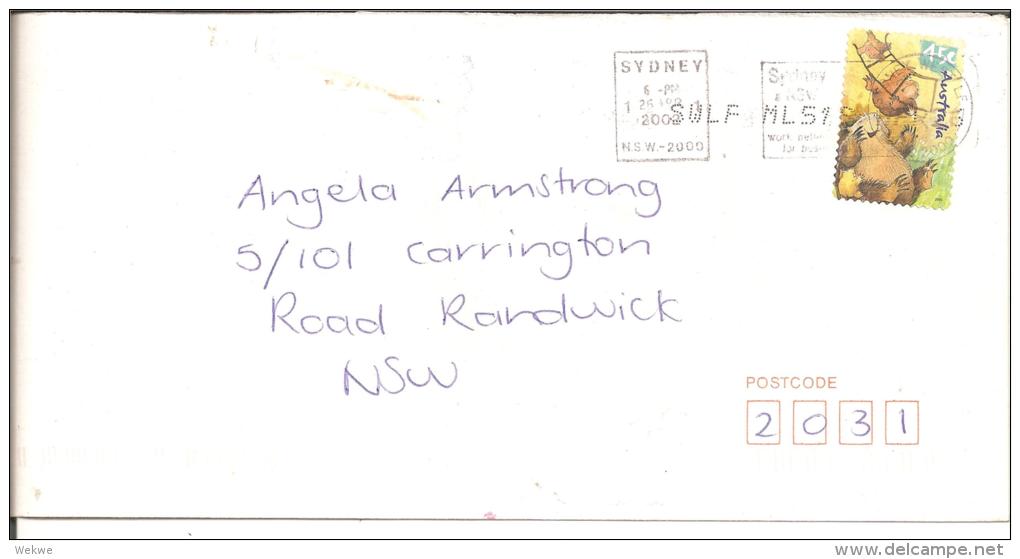 SYDNEY
6 -PM
2002
N.S.W.-2000
Sydney
work
45c
Australia
Angela Armstrong
5/101 Carrington
Road Randwick
NSW
POSTCODE
2 0 3 1
Wekwe
delcampe.net